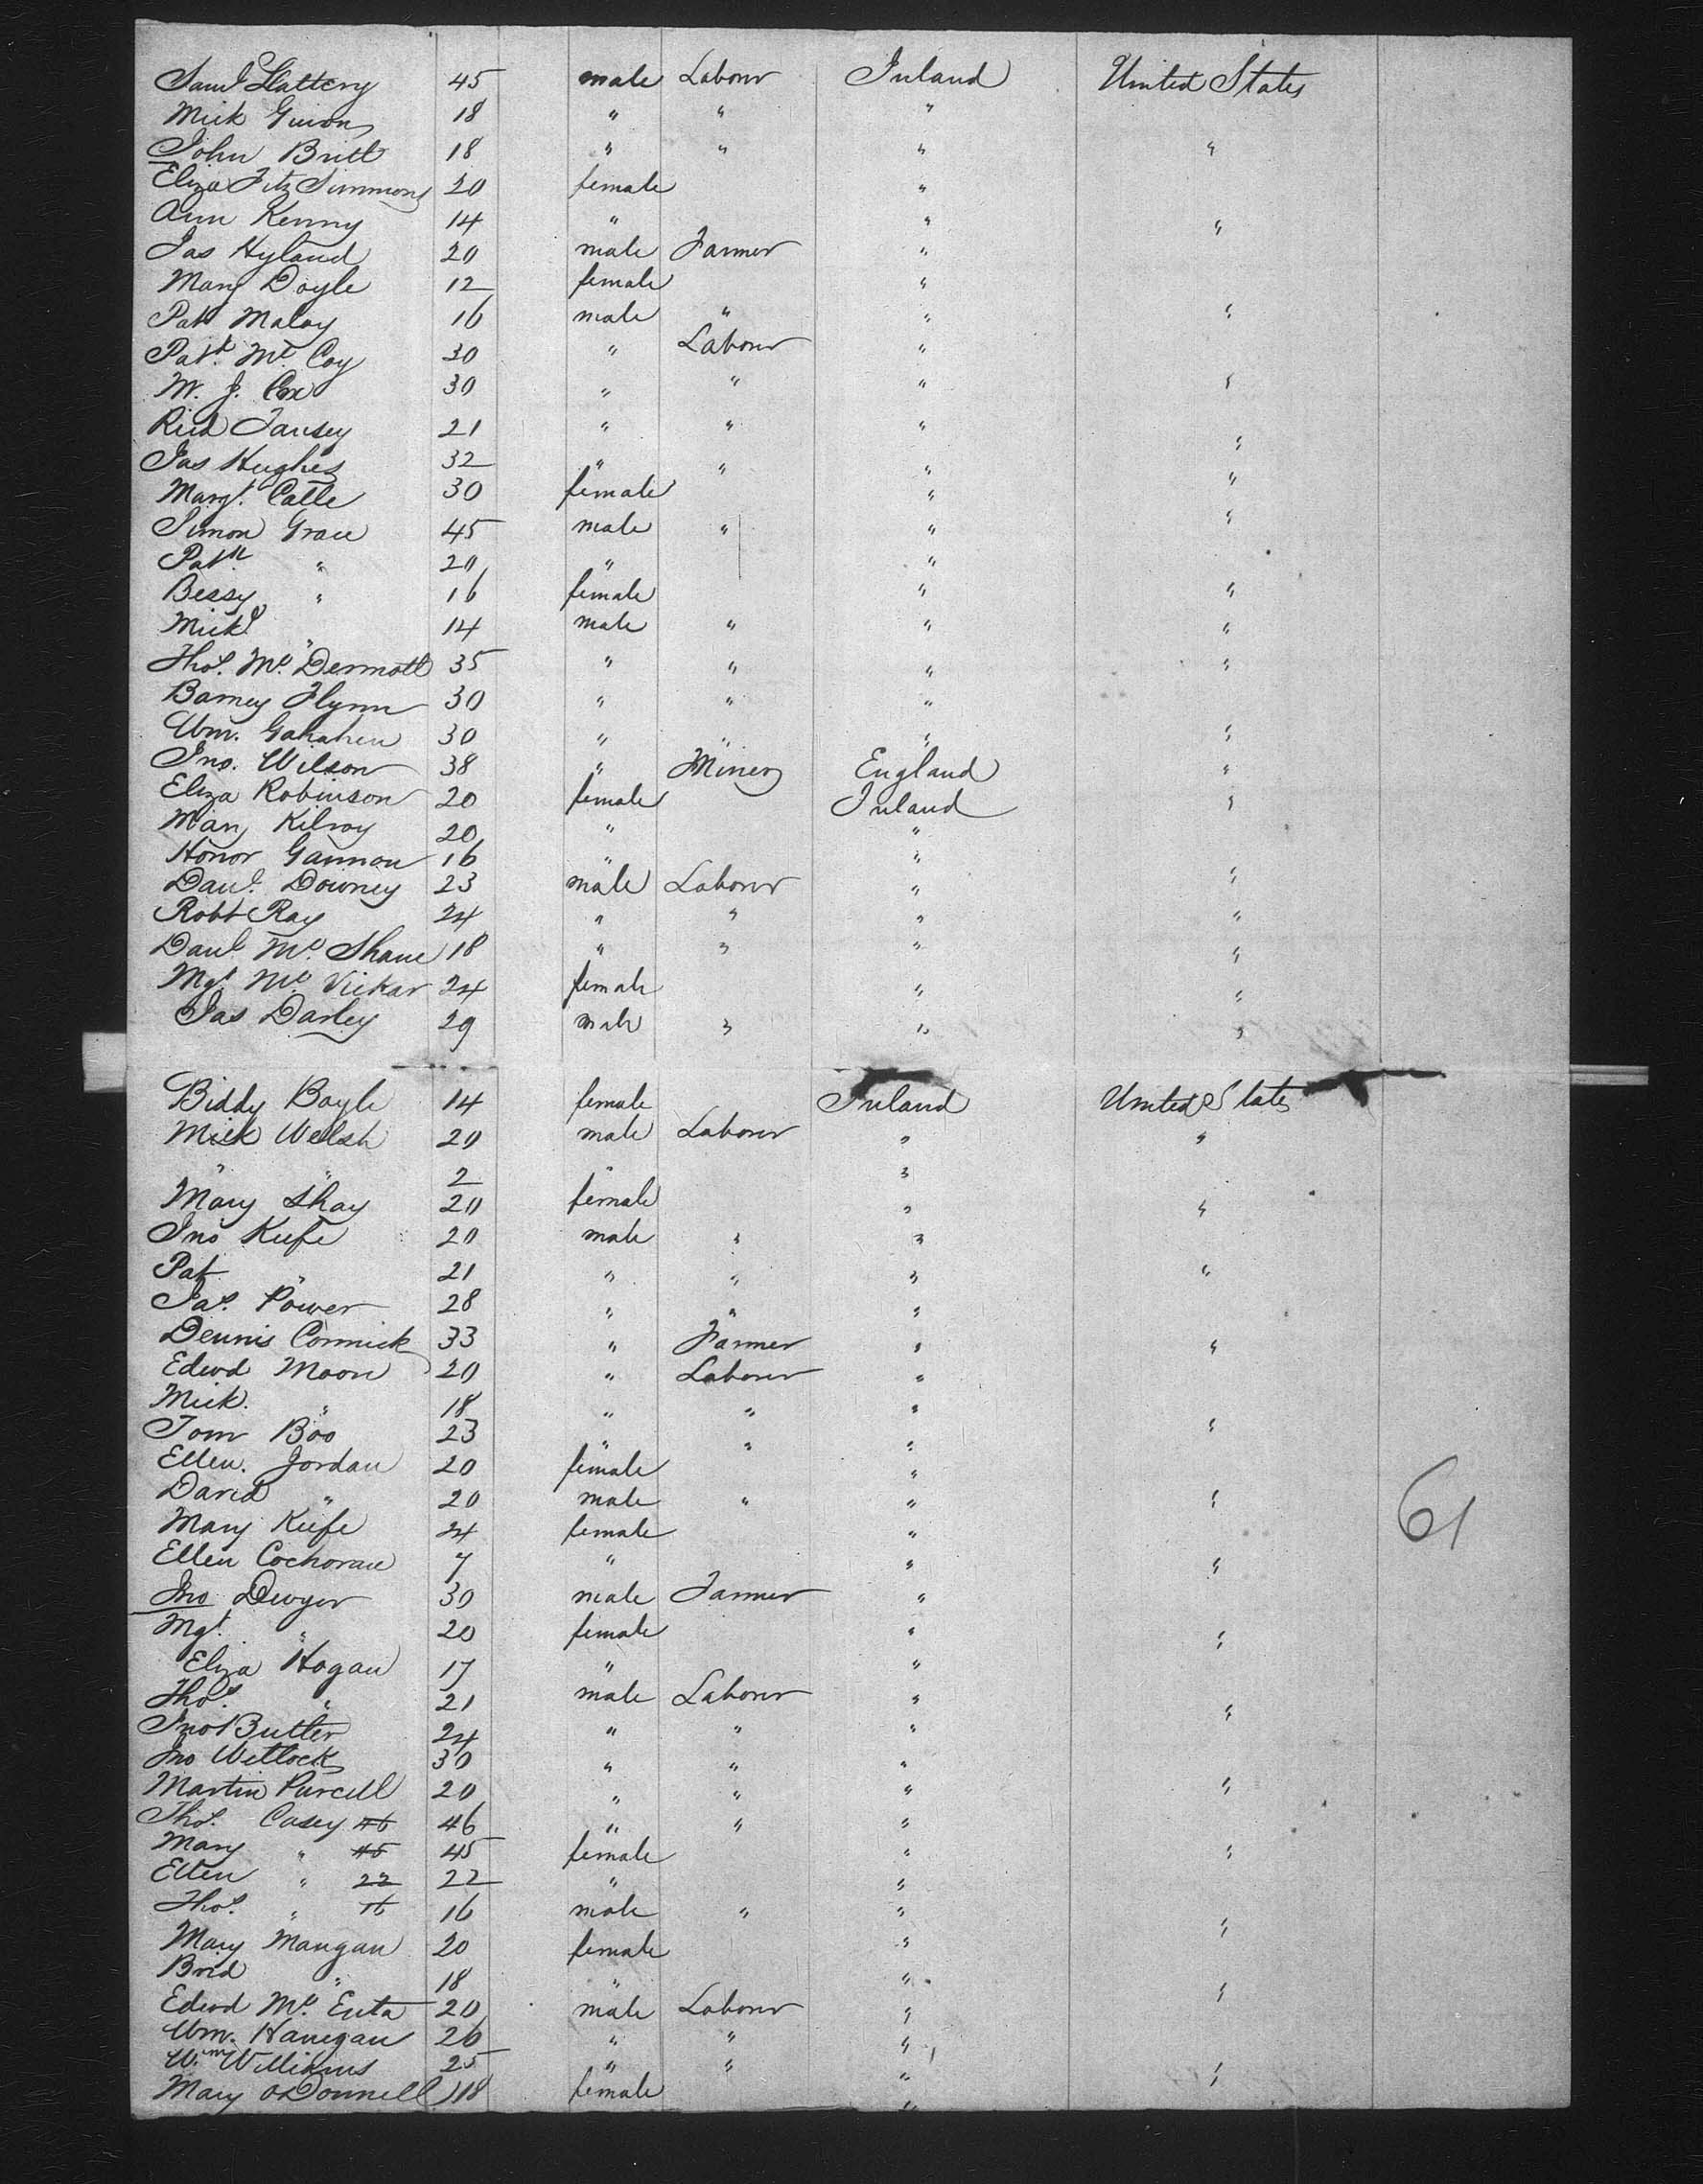 Saml Slattery 45 male Labour Ireland United States
Mick 18 " " "
John Britt 18 " " " "
Eliza Fitz Simmons 20 female "
Ann Kenny 14 " " "
Jas Hyland 20 male Farmer "
Mary Doyle 12 female "
Patk Maloy 16 male " " "
Patk Mc Coy 30 " Labour "
W. J. Cox 30 " " " "
Richd 21 " " " "
Jas Hughes 32 " " " "
Margt. Calle 30 female " "
Simon Grace 45 male " "
Patk " 20 " "
Bessy " 16 female " "
Mickl " 14 male " " "
Thos. Mc Dermott 35 " " " "
Barney Flynn 30 " " "
Wm. Gahahen 30 " " " "
Jno. Wilson 38 " Miner England "
Eliza Robinson 20 female Ireland "
Mary Kilroy 20 " "
Honor Gannon 16 " "
Danl. Downey 23 male Labour " "
Robt Ray 24 " " " "
Danl Mc Shane 18 " " " "
Mgt Mc Vickar 24 female " "
Jas Darley 29 male " " "
Biddy Boyle 14 female Ireland United States
Mick Welsh 20 male Labour " "
" " 2 " "
Mary Shay 20 female " "
Jno Keefe 20 male " "
Pat " 21 " " " "
Jas. Power 28 " " "
Dennis Cormick 33 " Farmer " "
Edwd Moon 20 " Labour "
Mick. " 18 " " "
Tom Boo 23 " " " "
Ellen. Jordan 20 female "
David " 20 male " " "
Mary Keefe 24 female "
Ellen Cochoran 7 " " "
Jno Dwyer 30 male Farmer "
Mgt. " 20 female " "
Eliza Hogan 17 " "
Thos. " 21 male Labour " "
Jno Butler 24 " " "
Jno Wetlock 30 " " "
Martin Purcell 20 " " " "
Thos. Casey 46 46 " " "
Mary " 45 45 female " "
Ellen " 22 22 " "
Thos. " 16 16 male " " "
Mary Mangan 20 female "
Brid " 18 " " "
Edwd Mc Enta 20 male Labour "
Wm. Hanegan 26 " " "
Wm Williams 25 " " " "
Mary O Donnell 18 female "
61